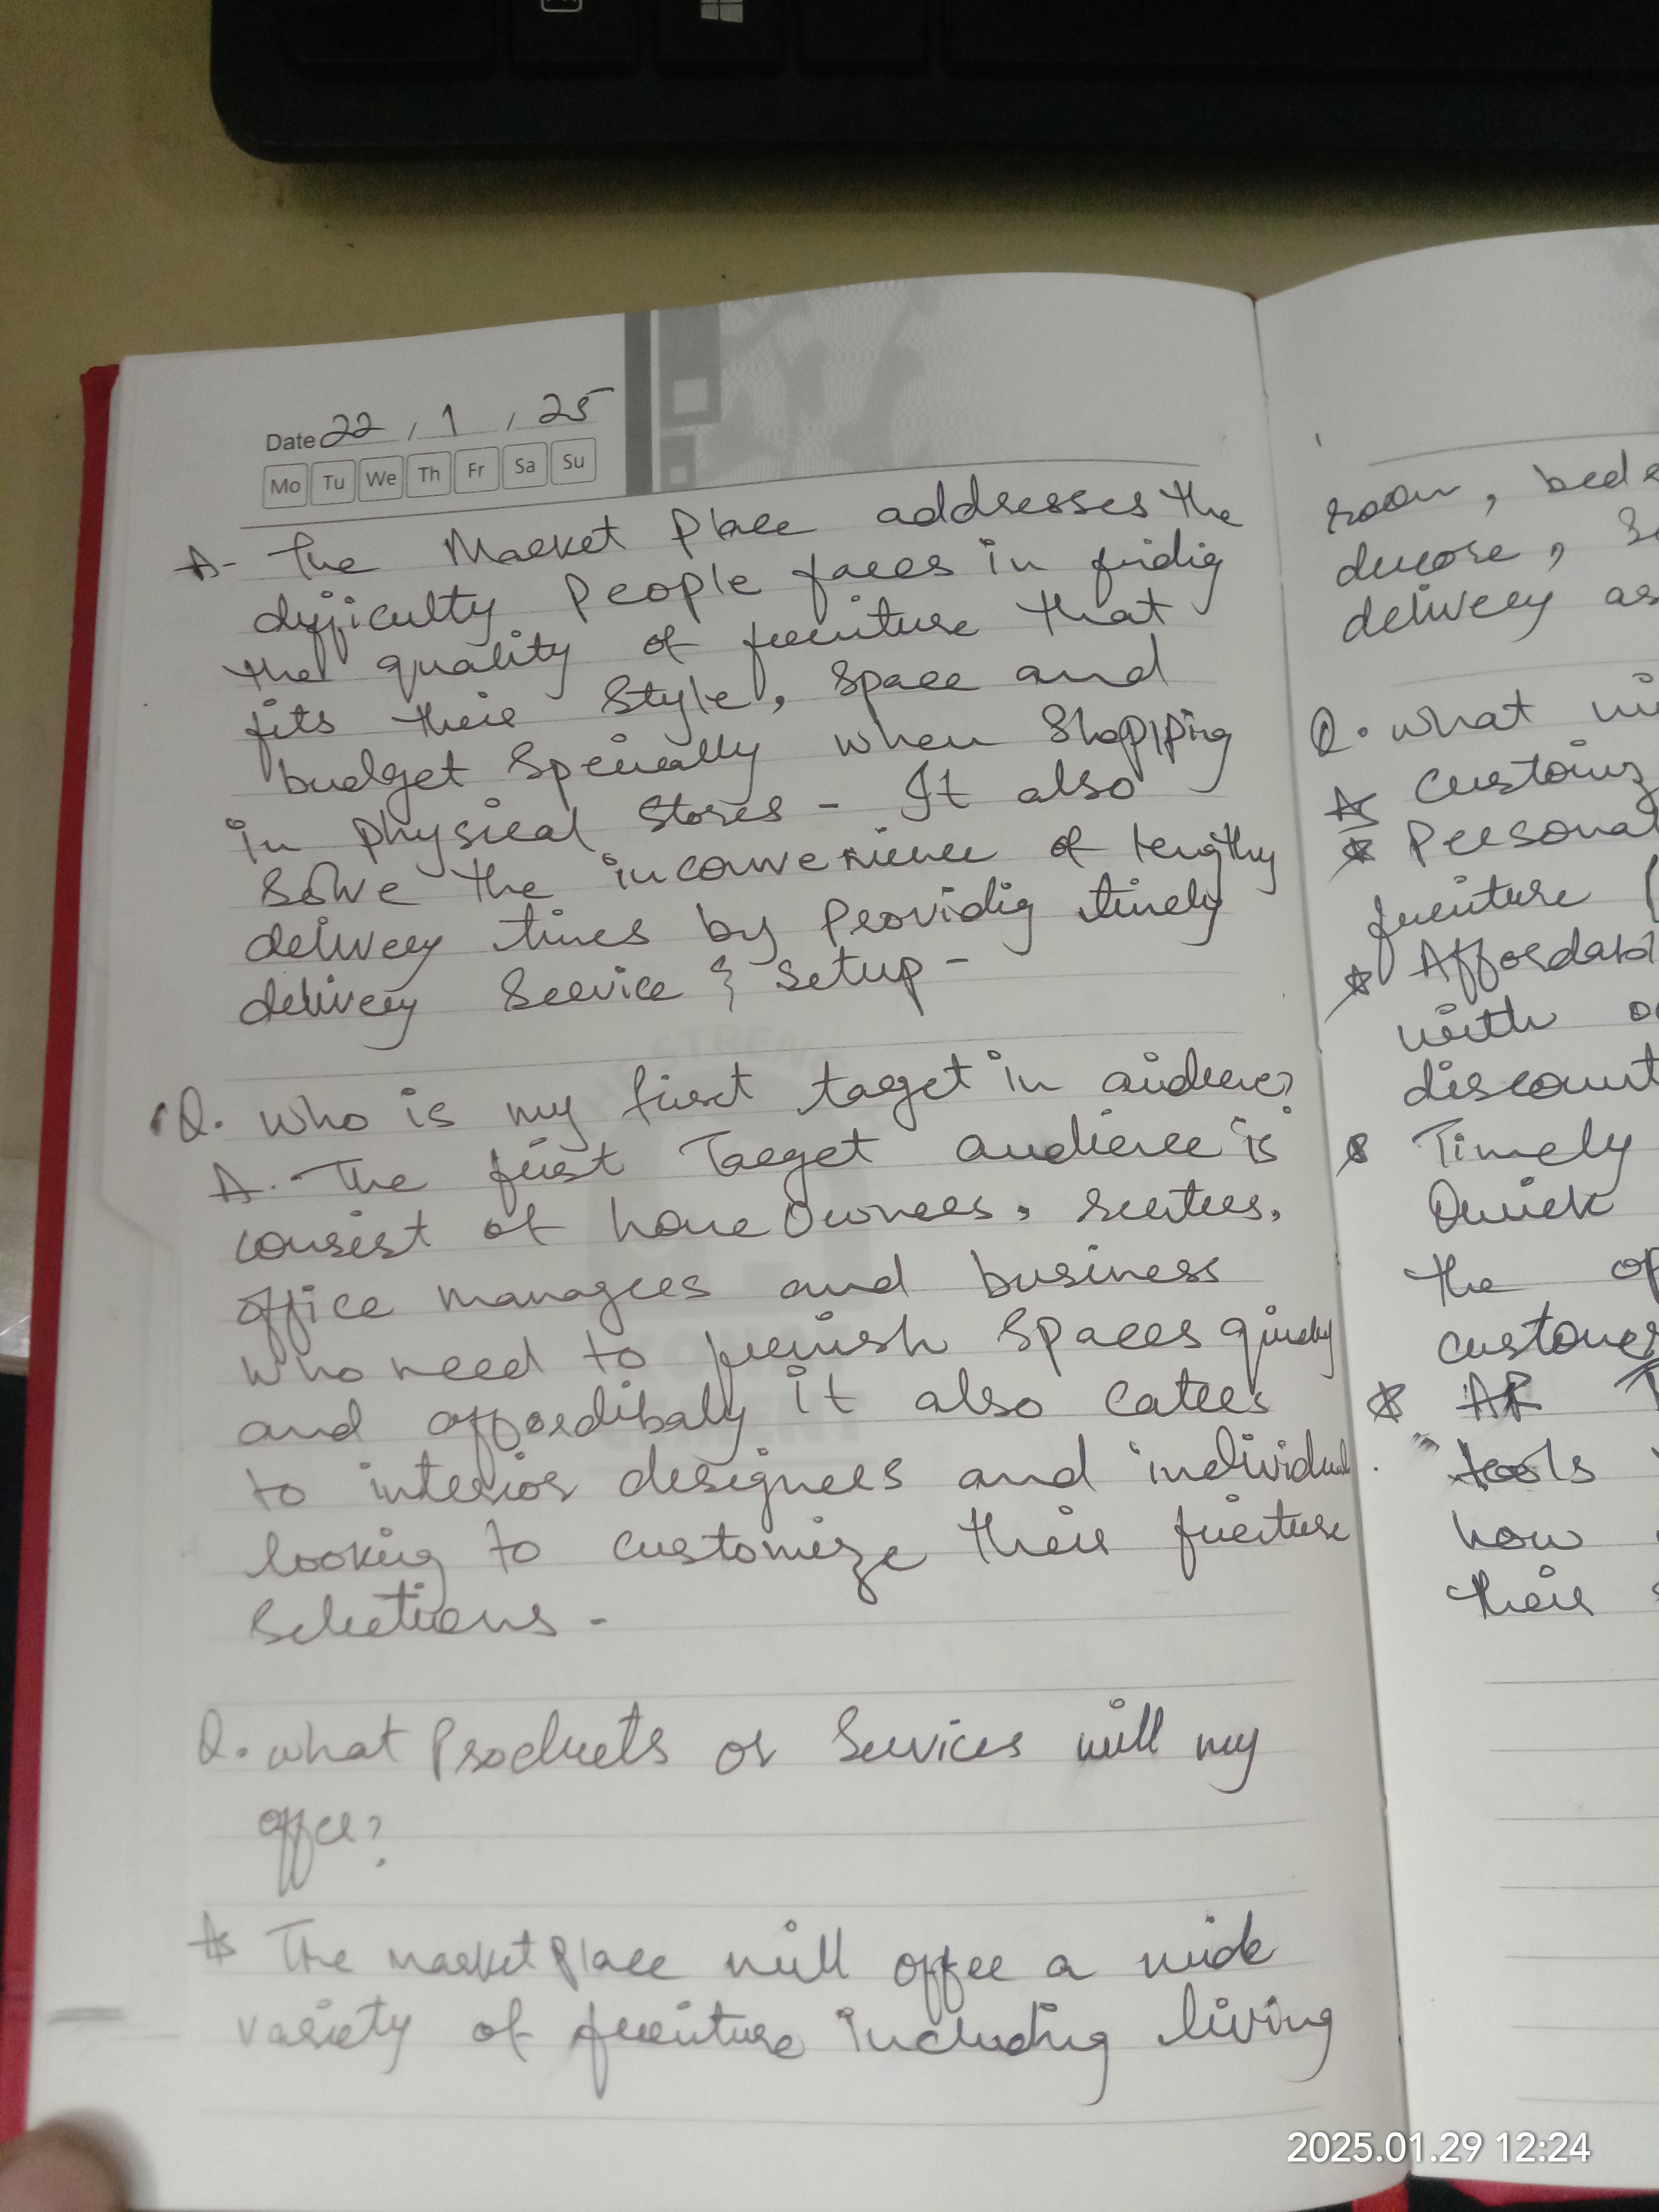 Date 22 / 1 / 25
Mo Tu We Th Fr Sa Su
A- The Market Place addresses the
difficulty People faces in findig
the quality of furniture that
fits their Style, Space and
budget Specially when Shopping
in physical Stores - It also
Solve the inconvenience of lengthy
delivery times by Providig timely
delivery Service & Setup -
Q. Who is my first taget in audience?
A. - The first Target audience is
consist of home Owners, renters,
office managers and business
who need to furnish Spaces quickly
and affordibaly it also caters
to interior designers and individual
looking to customize their furniture
Selections -
Q. what Products or Services will my
offer?
A The market Place will offer a wide
variety of furniture including living
room, beds
decore,
delivery as
Q. what
A Customiz
* Personal
furniture (
* Affordabl
with
discount
* Timely
Quick
the op
customer
* AR
tools
how
their
2025.01.29 12:24